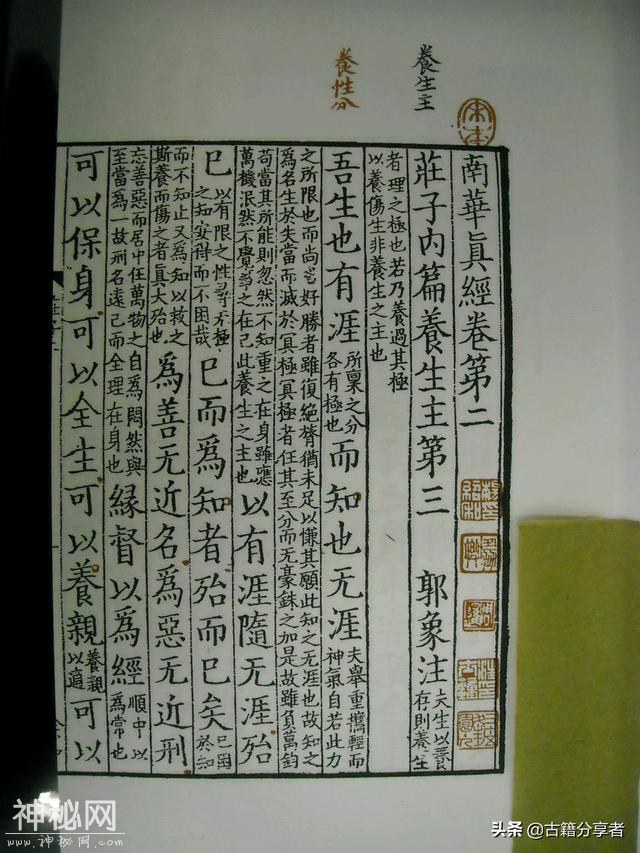 養生主
養性分
南華真經卷第二
莊子内篇養生主第三 郭象注 夫生以養存則養生
者理之極也若乃養過其極
以養傷生非養生之主也
吾生也有涯 所稟之分各有極也 而知也无涯 夫舉重攜輕而神氣自若此力
之所限也而尚名好勝者雖復絶膂猶未足以慊其願此知之无涯也故知之
爲名生於失當而滅於冥極冥極者任其至分而无豪銖之加是故雖負萬鈞
苟當其所能則忽然不知重之在身雖應萬機泯然不覺事之在己此養生之主也 以有涯隨无涯殆
已 以有限之性尋无極之知安得而不困哉 已而爲知者殆而已矣 已困於知
而不知止又爲知以救之斯養而傷之者真大殆也 爲善无近名爲惡无近刑
忘善惡而居中任萬物之自爲悶然與至當爲一故刑名遠己而全理在身也 緣督以爲經 順中以爲常也
可以保身可以全生可以養親 養親以適 可以
神秘网
www.神秘网.com
头条 @古籍分享者